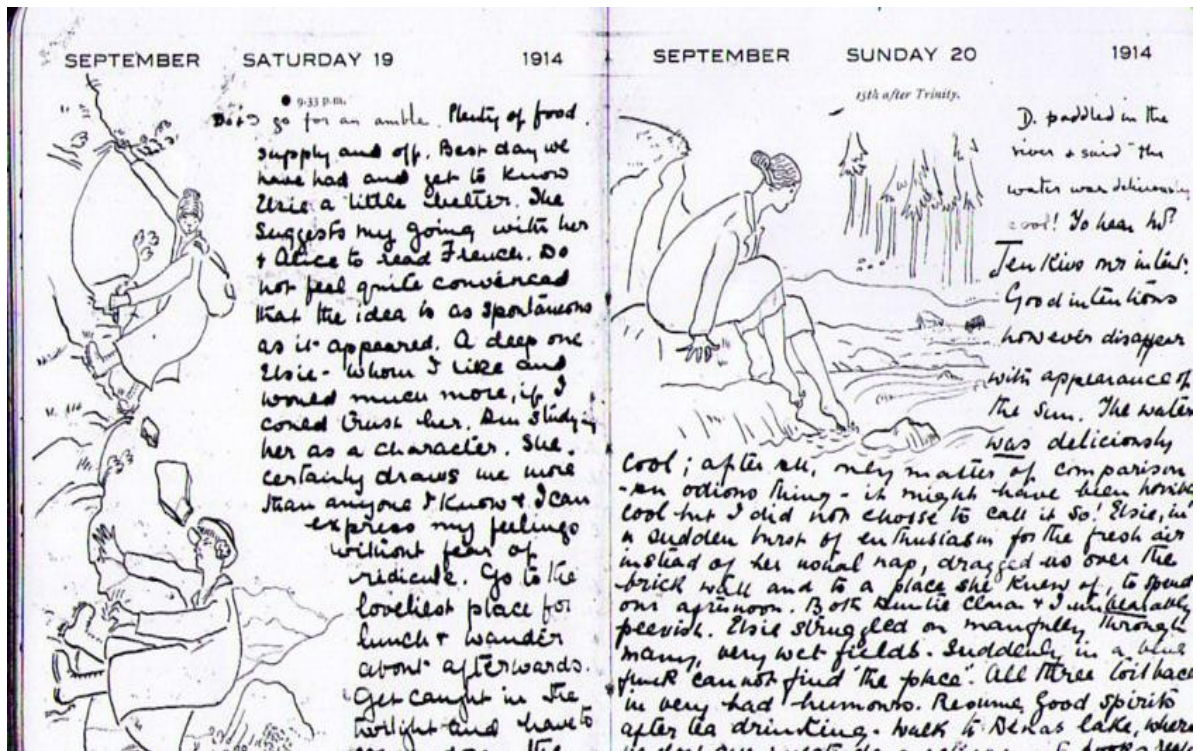 SEPTEMBER SATURDAY 19 1914
9.33 p.m.
go for an amble. Plenty of food
supply and off. Best day we
have had and get to know
Elsie a little better. She
suggests my going with her
& Alice to read French. Do
not feel quite convinced
that the idea is as spontaneous
as it appeared. A deep one
Elsie - whom I like and
would much more, if I
could trust her. Am studying
her as a character. She
certainly draws me more
than anyone I know & I can
express my feelings
without fear of
ridicule. Go to the
loveliest place for
lunch & wander
about afterwards.
Get caught in the
twilight and have to
the
SEPTEMBER SUNDAY 20 1914
15th after Trinity.
D. paddled in the
river & said "the
water was deliciously
cool! To hear
Jenkins our intent.
Good intentions
however disappear
with appearance of
the Sun. The water
was deliciously
cool; after all, only matter of comparison
-an odious thing - it might have been horrid
cool but I did not choose to call it so! Elsie, in
a sudden burst of enthusiasm for the fresh air
instead of her usual nap, dragged us over the
brick wall and to a place she knew of, to spend
our afternoon. Both Auntie Clara & I unbearably
peevish. Elsie struggled on manfully through
many, very wet fields. Suddenly in a blue
funk cannot find "the place". All three toil back
in very bad humours. Resume good spirits
after tea drinking. Walk to lake, where